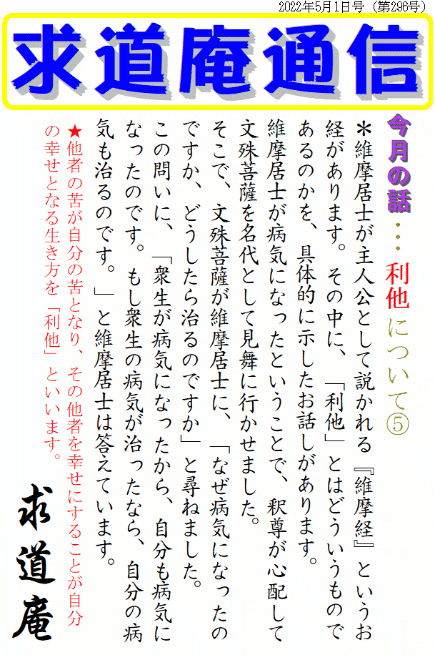 2022年5月1日号（第296号）
求道庵通信
今月の話…利他について⑤
＊維摩居士が主人公として説かれる『維摩経』というお
経があります。その中に、「利他」とはどういうもので
あるのかを、具体的に示したお話しがあります。
維摩居士が病気になったということで、釈尊が心配して
文殊菩薩を名代として見舞に行かせました。
そこで、文殊菩薩が維摩居士に、「なぜ病気になったの
ですか、どうしたら治るのですか」と尋ねました。
この問いに、「衆生が病気になったから、自分も病気に
なったのです。もし衆生の病気が治ったなら、自分の病
気も治るのです。」と維摩居士は答えています。
★他者の苦が自分の苦となり、その他者を幸せにすることが自分
の幸せとなる生き方を「利他」といいます。
求道庵